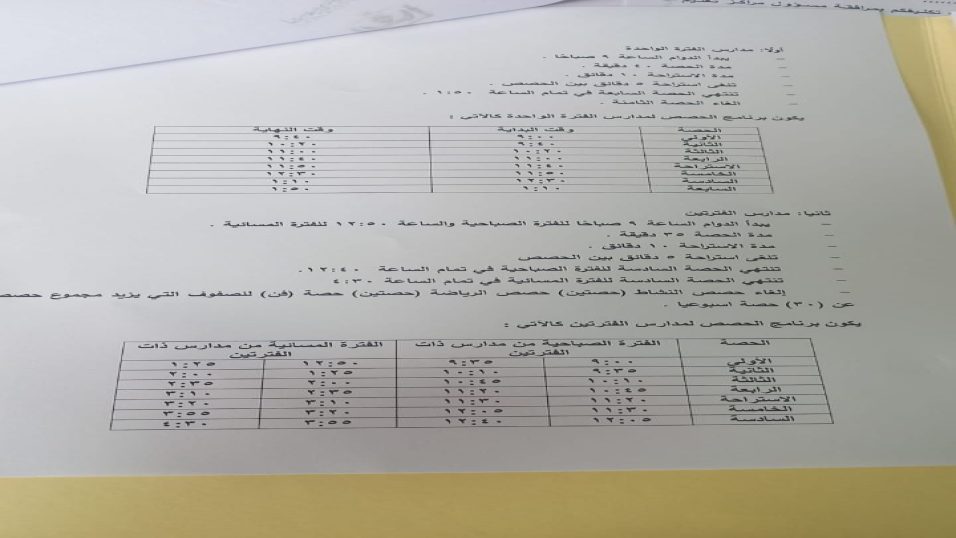 تكليفكم بمرافقة مسؤول مراكز
أولا: مدارس الفترة الواحدة
– يبدأ الدوام الساعة ٩ صباحا .
– مدة الحصة ٤٠ دقيقة .
– مدة الاستراحة ١٠ دقائق .
– تلغى استراحة ٥ دقائق بين الحصص .
– تنتهي الحصة السابعة في تمام الساعة ١:٥٠ .
– الغاء الحصة الثامنة .
يكون برنامج الحصص لمدارس الفترة الواحدة كالآتي :
الحصة وقت البداية وقت النهاية
الأولى ٩:٠٠ ٩:٤٠
الثانية ٩:٤٠ ١٠:٢٠
الثالثة ١٠:٢٠ ١١:٠٠
الرابعة ١١:٠٠ ١١:٤٠
الاستراحة ١١:٤٠ ١١:٥٠
الخامسة ١١:٥٠ ١٢:٣٠
السادسة ١٢:٣٠ ١:١٠
السابعة ١:١٠ ١:٥٠
ثانيا: مدارس الفترتين
– يبدأ الدوام الساعة ٩ صباحا للفترة الصباحية والساعة ١٢:٥٠ للفترة المسائية .
– مدة الحصة ٣٥ دقيقة .
– مدة الاستراحة ١٠ دقائق .
– تلغى استراحة ٥ دقائق بين الحصص
– تنتهي الحصة السادسة للفترة الصباحية في تمام الساعة ١٢:٤٠.
– تنتهي الحصة السادسة للفترة المسائية في تمام الساعة ٤:٣٠
– إلغاء حصص النشاط (حصتين) حصص الرياضة (حصتين) حصة (فن) للصفوف التي يزيد مجموع حصص
عن (٣٠) حصة اسبوعيا .
يكون برنامج الحصص لمدارس الفترتين كالآتي :
الحصة الفترة الصباحية من مدارس ذات الفترتين الفترة المسائية من مدارس ذات الفترتين
الأولى ٩:٠٠ ٩:٣٥ ١٢:٥٠ ١:٢٥
الثانية ٩:٣٥ ١٠:١٠ ١:٢٥ ٢:٠٠
الثالثة ١٠:١٠ ١٠:٤٥ ٢:٠٠ ٢:٣٥
الرابعة ١٠:٤٥ ١١:٢٠ ٢:٣٥ ٣:١٠
الاستراحة ١١:٢٠ ١١:٣٠ ٣:١٠ ٣:٢٠
الخامسة ١١:٣٠ ١٢:٠٥ ٣:٢٠ ٣:٥٥
السادسة ١٢:٠٥ ١٢:٤٠ ٣:٥٥ ٤:٣٠